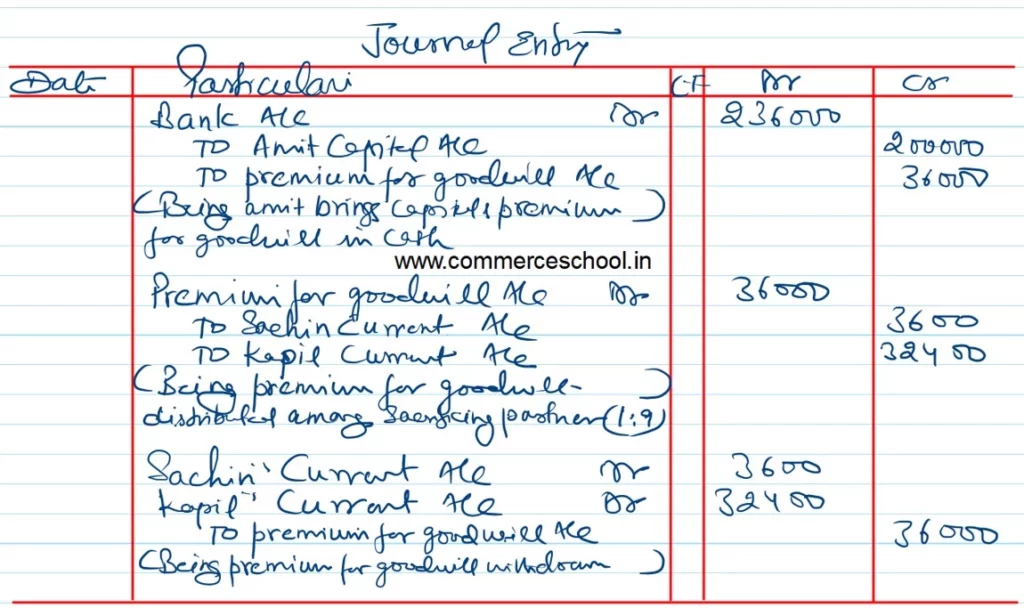 Journal Entry
Date Particulars CF Dr Cr
Bank A/c Dr 236000
TO Amit Capital A/c 200000
TO premium for goodwill A/c 36000
(Being amit brings capital & premium)
for goodwill in cash
www.commerceschool.in
Premium for goodwill A/c Dr 36000
TO Sachin Current A/c 3600
TO Kapil Current A/c 32400
(Being premium for goodwill-)
distributed among sacrificing partner (1:9)
Sachin's Current A/c Dr 3600
Kapil's Current A/c Dr 32400
TO premium for goodwill A/c 36000
(Being premium for goodwill withdrawn)